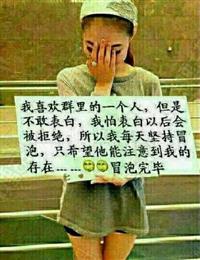 我喜欢群里的一个人，但是
不敢表白，我怕表白以后会
被拒绝，所以我每天坚持冒
泡，只希望他能注意到我的
存在… …😄😄冒泡完毕